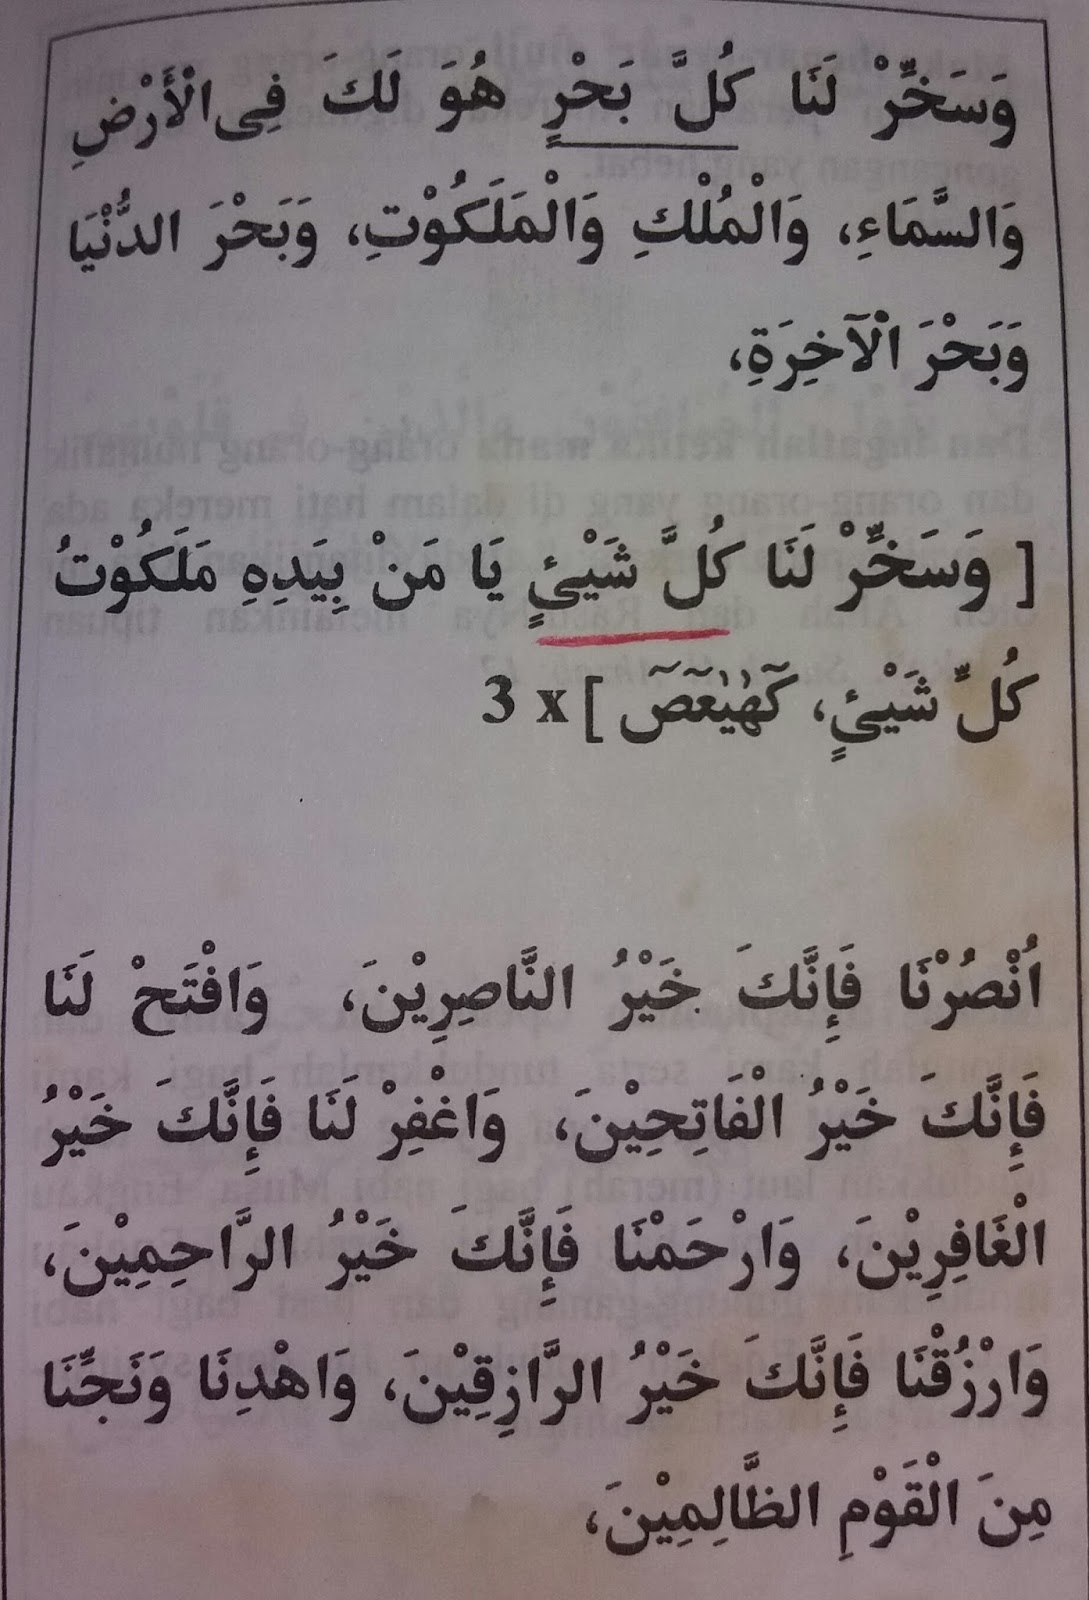 وَسَخِّرْ لَنَا كُلَّ بَحْرٍ هُوَ لَكَ فِى الْأَرْضِ
وَالسَّمَاءِ، وَالْمُلْكِ وَالْمَلَكُوْتِ، وَبَحْرَ الدُّنْيَا
وَبَحْرَ الْآخِرَةِ،
[ وَسَخِّرْ لَنَا كُلَّ شَيْئٍ يَا مَنْ بِيَدِهِ مَلَكُوْتُ
كُلِّ شَيْئٍ، كٓهٰيٰعٓصٓ ] 3 x
اُنْصُرْنَا فَإِنَّكَ خَيْرُ النَّاصِرِيْنَ، وَافْتَحْ لَنَا
فَإِنَّكَ خَيْرُ الْفَاتِحِيْنَ، وَاغْفِرْ لَنَا فَإِنَّكَ خَيْرُ
الْغَافِرِيْنَ، وَارْحَمْنَا فَإِنَّكَ خَيْرُ الرَّاحِمِيْنَ،
وَارْزُقْنَا فَإِنَّكَ خَيْرُ الرَّازِقِيْنَ، وَاهْدِنَا وَنَجِّنَا
مِنَ الْقَوْمِ الظَّالِمِيْنَ،